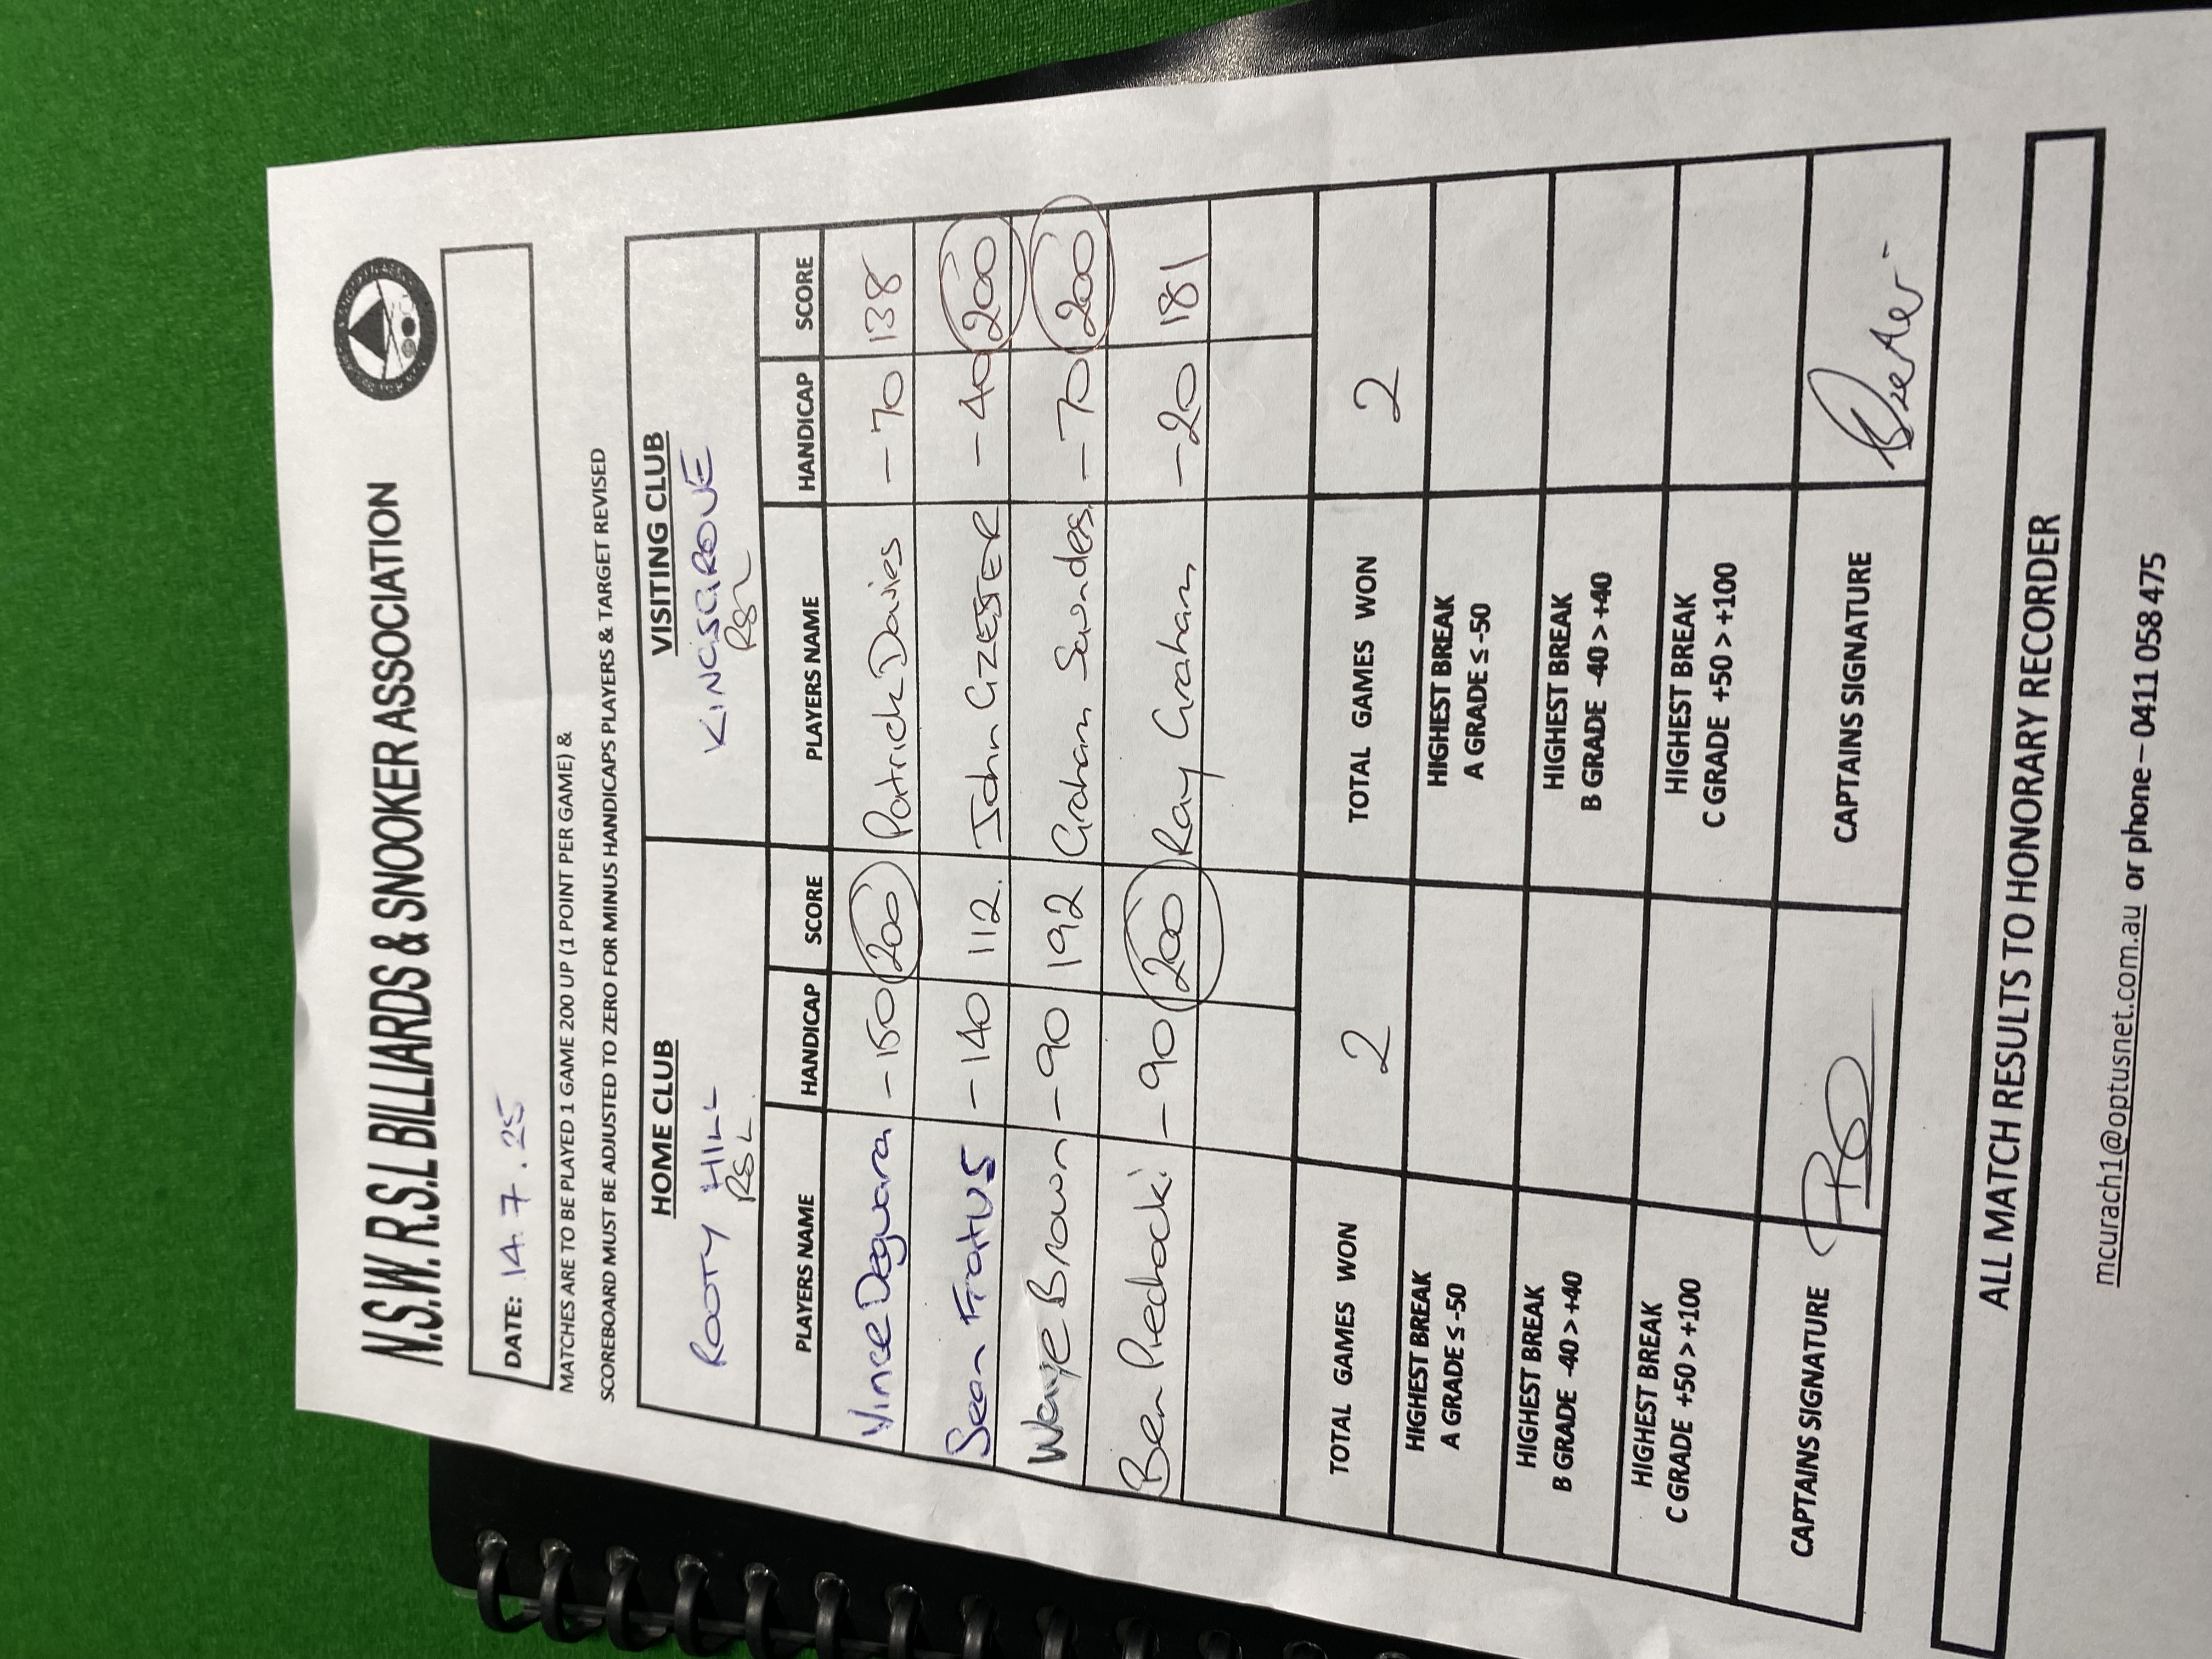 N.S.W. R.S.L BILLIARDS & SNOOKER ASSOCIATION
DATE: 14.7.25
MATCHES ARE TO BE PLAYED 1 GAME 200 UP (1 POINT PER GAME) &
SCOREBOARD MUST BE ADJUSTED TO ZERO FOR MINUS HANDICAPS PLAYERS & TARGET REVISED
HOME CLUB VISITING CLUB
ROOTY HILL KINGSGROVE
RSL RSL
PLAYERS NAME HANDICAP SCORE PLAYERS NAME HANDICAP SCORE
Vince Deguara -150 200 Patrick Davies -70 138
Sean Fratus -140 112. John -40 200
Wayne Brown -90 192 Graham Saunders -70 200
Ben -90 200 Ray Graham -20 181
TOTAL GAMES WON 2 TOTAL GAMES WON 2
HIGHEST BREAK HIGHEST BREAK
A GRADE ≤ -50 A GRADE ≤ -50
HIGHEST BREAK HIGHEST BREAK
B GRADE -40 > +40 B GRADE -40 > +40
HIGHEST BREAK HIGHEST BREAK
C GRADE +50 > +100 C GRADE +50 > +100
CAPTAINS SIGNATURE CAPTAINS SIGNATURE
ALL MATCH RESULTS TO HONORARY RECORDER
mcurach1@optusnet.com.au or phone – 0411 058 475